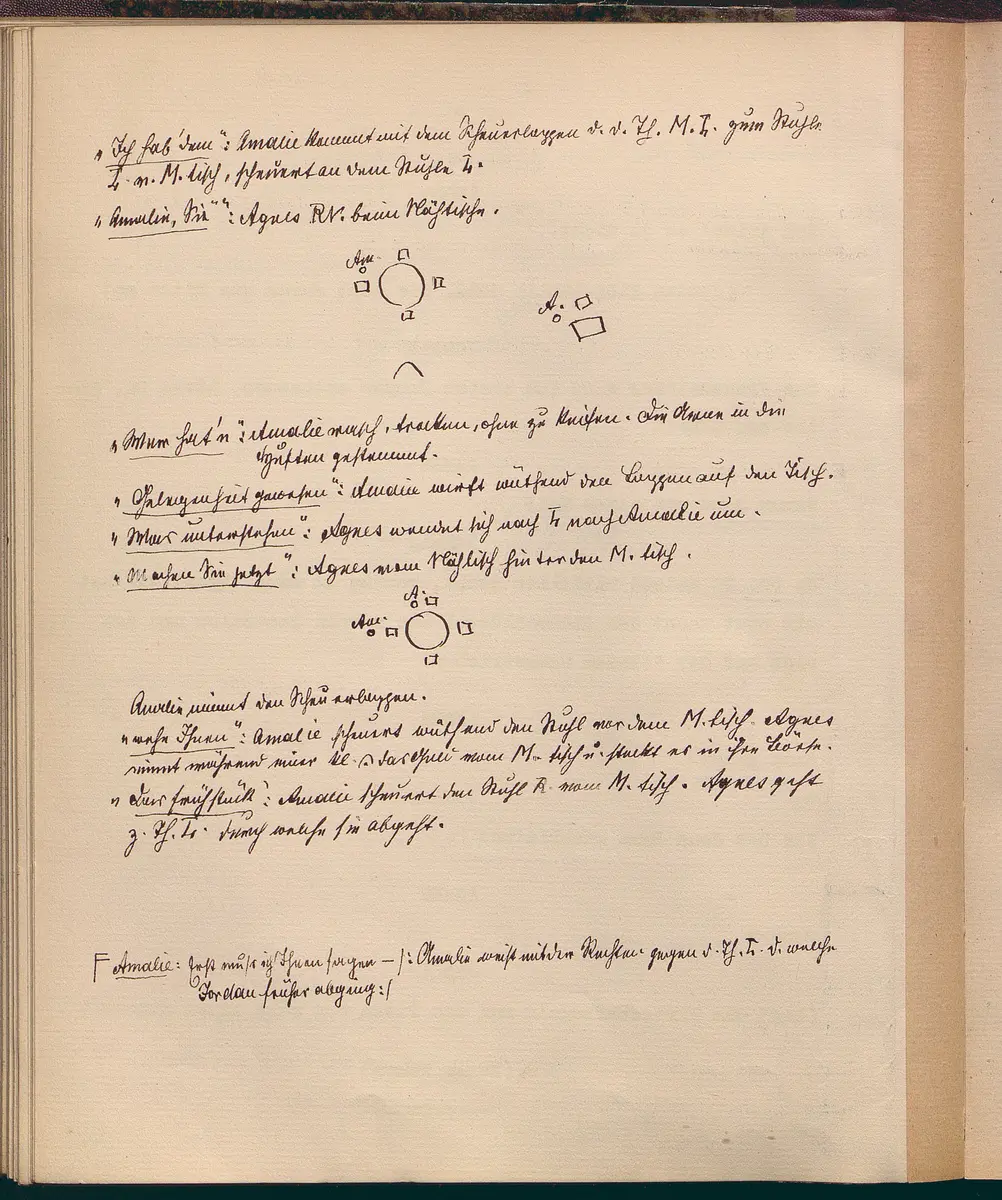 „Ich hab' dem“: Amalie kommt mit dem Scheuerlappen d. d. Th. M. L. zum Stuhle
L. v. M. tisch, scheuert an dem Stuhle L.
„Amalie, Sie“: Agnes RV. beim Nähtische.
Am.
A.
„Wer hat'n“: Amalie rasch, trocken, ohne zu keifen. Die Arme in die
Hüften gestemmt.
„Gelegenheit gewesen“: Amalie wirft wüthend den Lappen auf den Tisch.
„Was unterstehen“: Agnes wendet sich nach L nach Amalie um.
„Machen Sie jetzt“: Agnes vom Nähtisch hinter den M. tisch.
A.
Am.
Amalie nimmt den Scheuerlappen.
„wehe Ihnen“: Amalie scheuert wüthend den Stuhl vor dem M. tisch. Agnes
nimmt während einer kl. das Geld vom M. tisch u. steckt es in ihre Börse.
„Das Frühstück“: Amalie scheuert den Stuhl R. vom M. tisch. Agnes geht
z. Th. L. durch welche sie abgeht.
Γ Amalie: Erst muss ich Ihnen sagen – /: Amalie weist mit der Rechten gegen d. Th. L. d. welche
Jordan früher abging :/